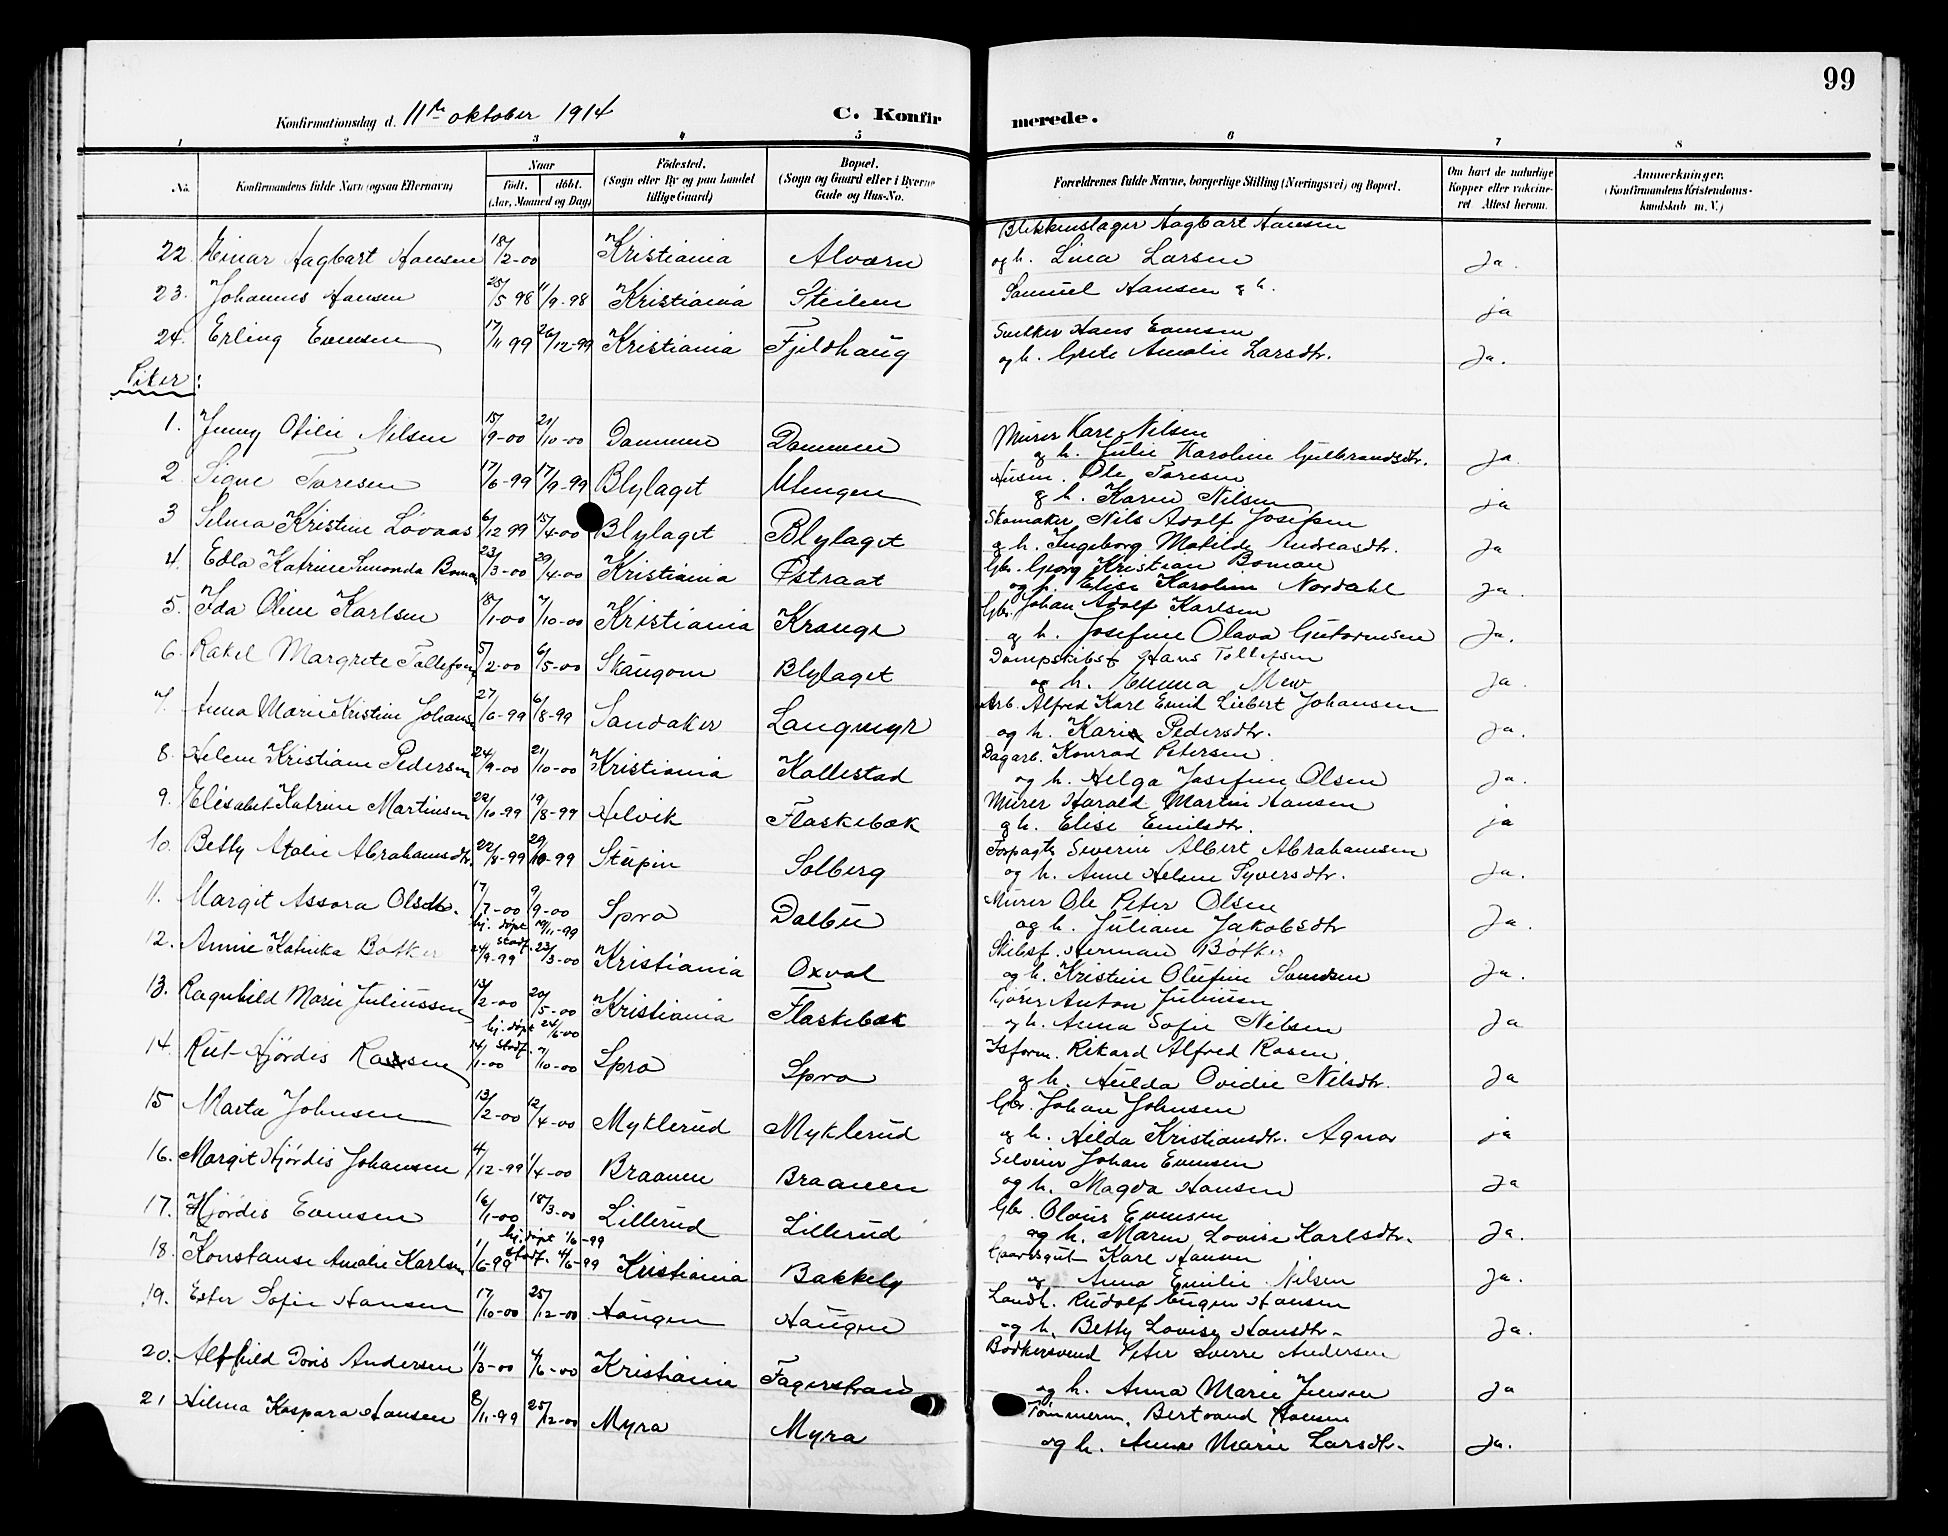 99
Konfirmationsdag d. 11te oktober 1914
C. Konfirmerede.
1 2 3 4 5 6 7 8
No. Konfirmandens fulde Navn (ogsaa Efternavn) Naar født. døbt. (Aar, Maaned og Dag) Födested. (Sogn eller By og paa Landet tillige Gaard) Bopæl. (Sogn og Gaard eller i Byerne Gade og Hus-No. Forældrenes fulde Navne, borgerlige Stilling (Næringsvei) og Bopæl. Om havt de naturlige Kopper eller vaccineret. Attest herom. Anmærkninger. (Konfirmandens Kristendomskundskab m. V.)
Blikkenslager Hagbart Hansen
22. Einar Hagbart Hansen 18/2-00 Kristiania Alværn og h. Lina Larsen Ja.
23. Johannes Hansen 25/5 98 11/9-98 Kristiania Steilene Samuel Hansen og h. ja
24. Erling Evensen 17/11 99 26/12-99 Kristiania Fjeldhaug Snekker Hans Evensen
og h. Grete Amalie Larsdtr. Ja.
Piker:
1. Jenny Otilie Nilsen 15/9-00 21/10-00 Dammen Dammen Murer Karl Nilsen
og h. Julie Karoline Gulbrandsdtr. Ja
2. Signe Toresen 17/6-99 17/9-99 Blylaget Ulengen Husm. Ole Toresen
og h. Karen Nilsen ja
3 Selma Kristine Lövaas 6/12 99 15/4-00 Blylaget Blylaget Skomaker Nils Adolf Josefsen
og h. Ingeborg Matilde Andreasdtr. Ja
4. Edla Katrine Boman 23/3-00 29/4-00 Kristiania Østraat Gbr. Georg Kristian Boman
og h. Elise Karoline Nordahl Ja.
5. Ida Oline Karlsen 18/1-00 7/10-00 Kristiania Krange Gbr. Johan Adolf Karlsen
og h. Josefine Olava Gutormsen Ja.
6. Rakel Margrete Tollefsen 5/2-00 6/5-00 Skaugom Blylaget Dampskibsf. Hans Tollefsen
og h. Emma Ja.
7. Anna Marie Kristine Johansen 27/6-99 6/8-99 Sandaker Langmyr Arb. Alfred Karl Emil Liebert Johansen
og h. Kari Pedersdtr. Ja.
8. Helene Kristiane Pedersen 24/9-00 21/10-00 Kristiania Kallestad Dagarb. Konrad Petersen
og h. Helga Josefine Olsen Ja.
9. Elisabet Katrine Martinsen 22/10-99 19/8-99 Helvik Flaskebæk Murer Harald Martin Hansen
og h. Elise Emilsdtr. ja
10. Betty Atalie Abrahamsdtr. 22/8-99 29/10-99 Stupin Solberg Forpagter Severin Albert Abrahamsen
og h. Anne Helene Syversdtr. Ja.
11. Margit Assora Olsdtr. 17/7-00 9/9-00 Spro Dalbu Murer Ole Peter Olsen
og h. Juliane Jakobsdtr Ja.
hj. døpt 19/11-99
12. Annie Katinka Bøtker 24/9-99 stadf. 23/3-00 Kristiania Oxval Skibsf. Herman Bøtker
og h. Kristine Olufine Ja.
13. Ragnhild Marie Juliussen 13/2-00 20/5-00 Kristiania Flaskebæk Kjører Anton Juliussen
og h. Anna Sofie Nilsen Ja
hj. døpt 24/6-00
14. Rut Hjördis Rosen 14/1-00 stadf. 7/10-00 Spro Spro Isform. Rikard Alfred Rosen
og h. Hulda Ovidie Nilsdtr. Ja
15 Marta Johnsen 13/2-00 12/4-00 Myklerud Myklerud Gbr. Johan Johnsen
og h. Hilda Kristiansdtr. Agnor ja
16. Margit Hjördis Johansen 4/12-99 1/4-00 Braanen Braanen Selveier Johan Evensen
og h. Magda Hansen Ja
17. Hjördis Evensen 16/1-00 18/3-00 Lillerud Lillerud Gbr. Olaus Evensen
og h. Maren Lovise Karlsdtr. Ja.
hj. døpt 1/6-99
18. Konstanse Amalie Karlsen 1/6-99 stadf. 4/6-99 Kristiania Bakkely Gaardsgut Karl Hansen
og Anna Emilie Nilsen Ja.
19. Ester Sofie Hansen 17/10-00 25/12-00 Haugen Haugen Landh. Rudolf Eugen Hansen
og h. Betty Lovise Hansdtr. Ja.
20. Alfhild Doris Andersen 11/3-00 4/6-00 Kristiania Fagerstrand Bødkersvend Peter Sverre Andersen
og h. Anna Marie Jenson Ja
21 Hilma Kaspara Hansen 8/11-99 25/12-00 Myra Myra Tömmerm. Bertrand Hansen
og h. Anne Marie Larsdtr. Ja.